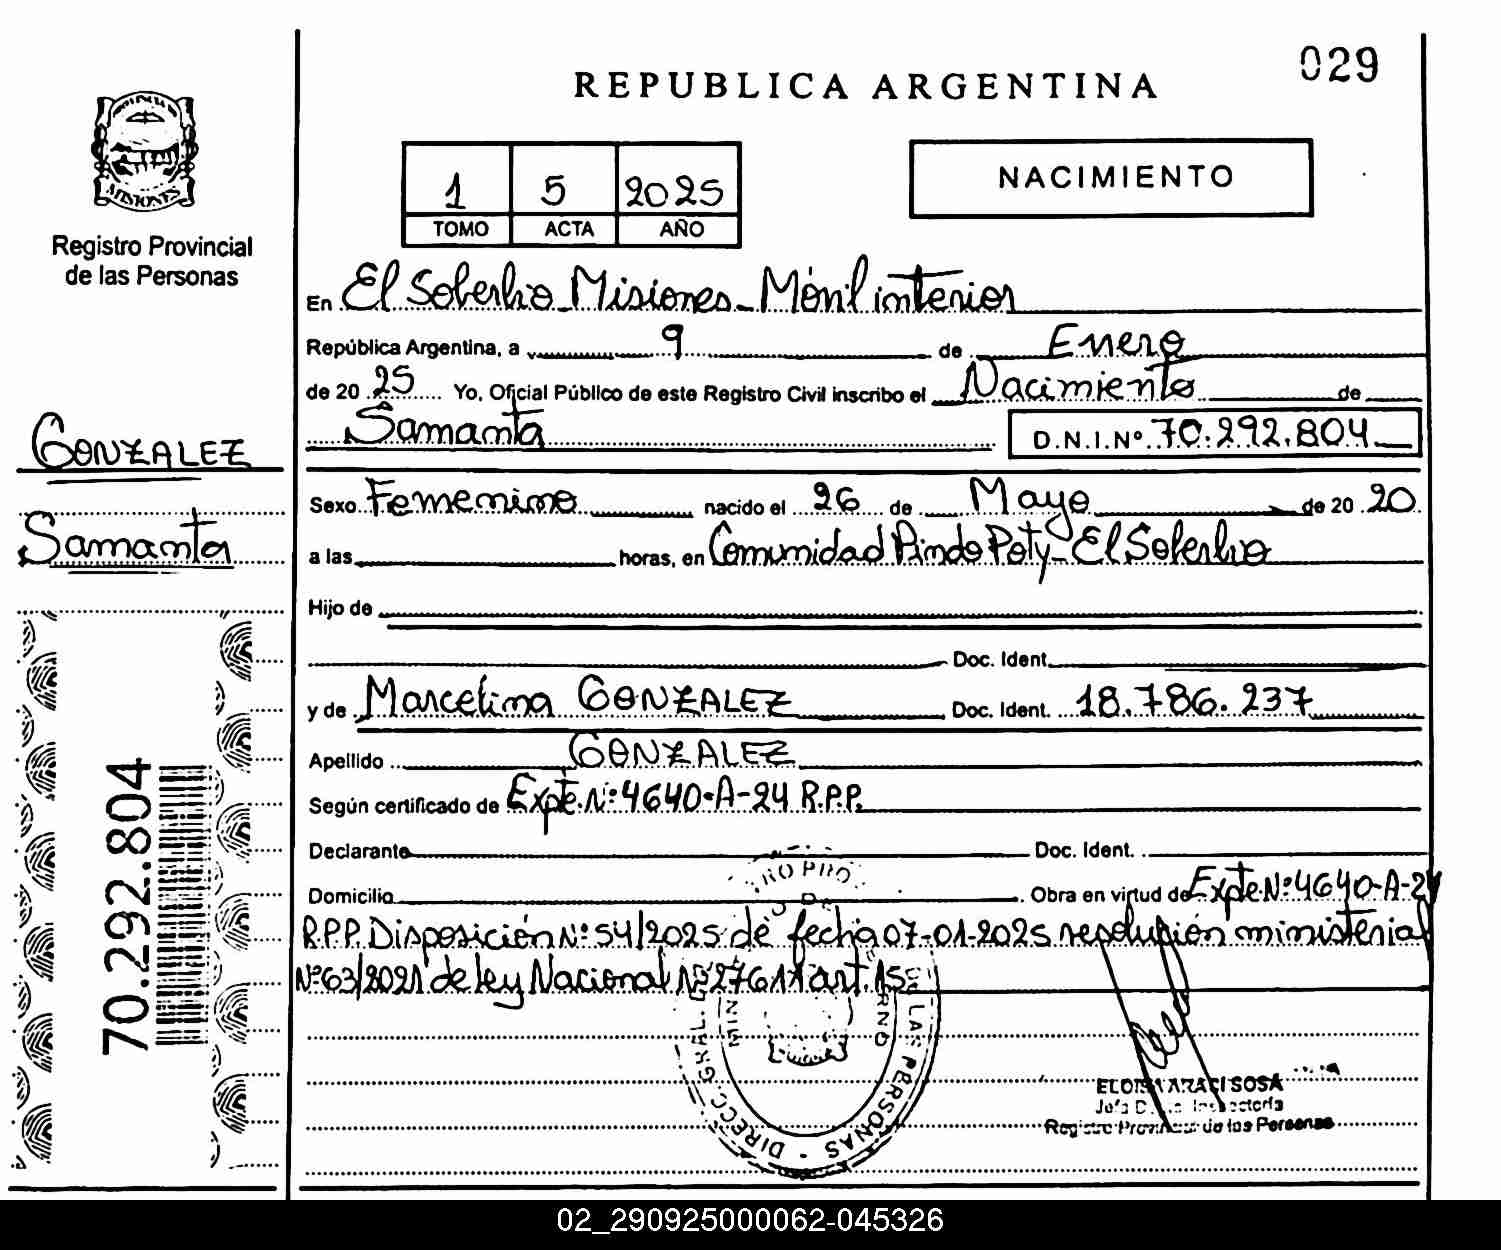 029
REPUBLICA ARGENTINA
PROVINCIA
MISIONES
Registro Provincial
de las Personas
1 5 2025
TOMO ACTA AÑO
NACIMIENTO
En El Soberbio Misiones - Móvil interior
República Argentina, a 9 de Enero
de 20 25 Yo, Oficial Público de este Registro Civil inscribo el Nacimiento de
Samanta D.N.I.Nº 70.292.804
GONZALEZ
Samanta
Sexo Femenino nacido el 26 de Mayo de 20 20
a las horas, en Comunidad Pindo Poty - El Soberbio
Hijo de
Doc. Ident.
y de Marcelina GONZALEZ Doc. Ident. 18.786.237
Apellido GONZALEZ
Según certificado de Expte. Nº 4640-A-24 R.P.P.
Declarante Doc. Ident.
Domicilio Obra en virtud de Expte Nº 4640-A-24
R.P.P. Disposición Nº 54/2025 de fecha 07-01-2025 resolución ministerial
Nº 63/2021 de ley Nacional Nº 27611 art. 15
70.292.804
DIRECC. GRAL. DE LAS PERSONAS
ELOISA ARACI SOSA
Registro Provincial de las Personas
02_290925000062-045326